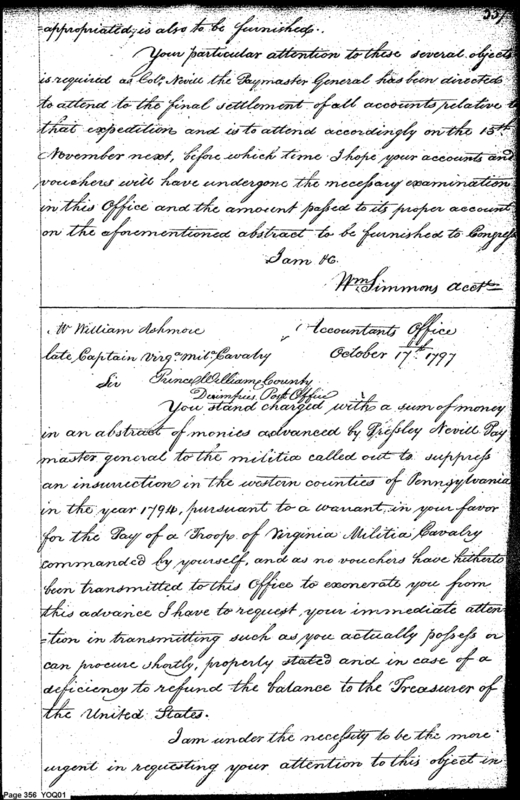 337
appropriated, is also to be furnished.
Your particular attention to these several objects
is required as Colo. Nevill the Paymaster General has been directed
to attend to the final settlement of all accounts relative to
that expedition and is to attend accordingly on the 15th
November next, before which time I hope your accounts and
vouchers will have undergone the necessary examination
in this Office and the amount passed to its proper account
on the aforementioned abstract to be furnished to Congress
I am &c.
Wm. Simmons acctt
Mr William Ashmore
Accountants Office
late Captain Virga. Mila. Cavalry
October 17th 1797
Prince William County
Sir
Dumfries Post Office
You stand charged with a sum of money
in an abstract of monies advanced by Presley Nevill Pay
master general to the militia called out to suppress
an insurrection in the western counties of Pennsylvania
in the year 1794, pursuant to a warrant, in your favor
for the Pay of a Troop of Virginia Militia Cavalry
commanded by yourself, and as no vouchers have hitherto
been transmitted to this Office to exonerate you from
this advance I have to request your immediate atten-
=tion in transmitting such as you actually possess or
can procure shortly, properly stated and in case of a
deficiency to refund the balance to the Treasurer of
the United States.
I am under the necessity to be the more
urgent in requesting your attention to this object in
Page 356 YOQ01